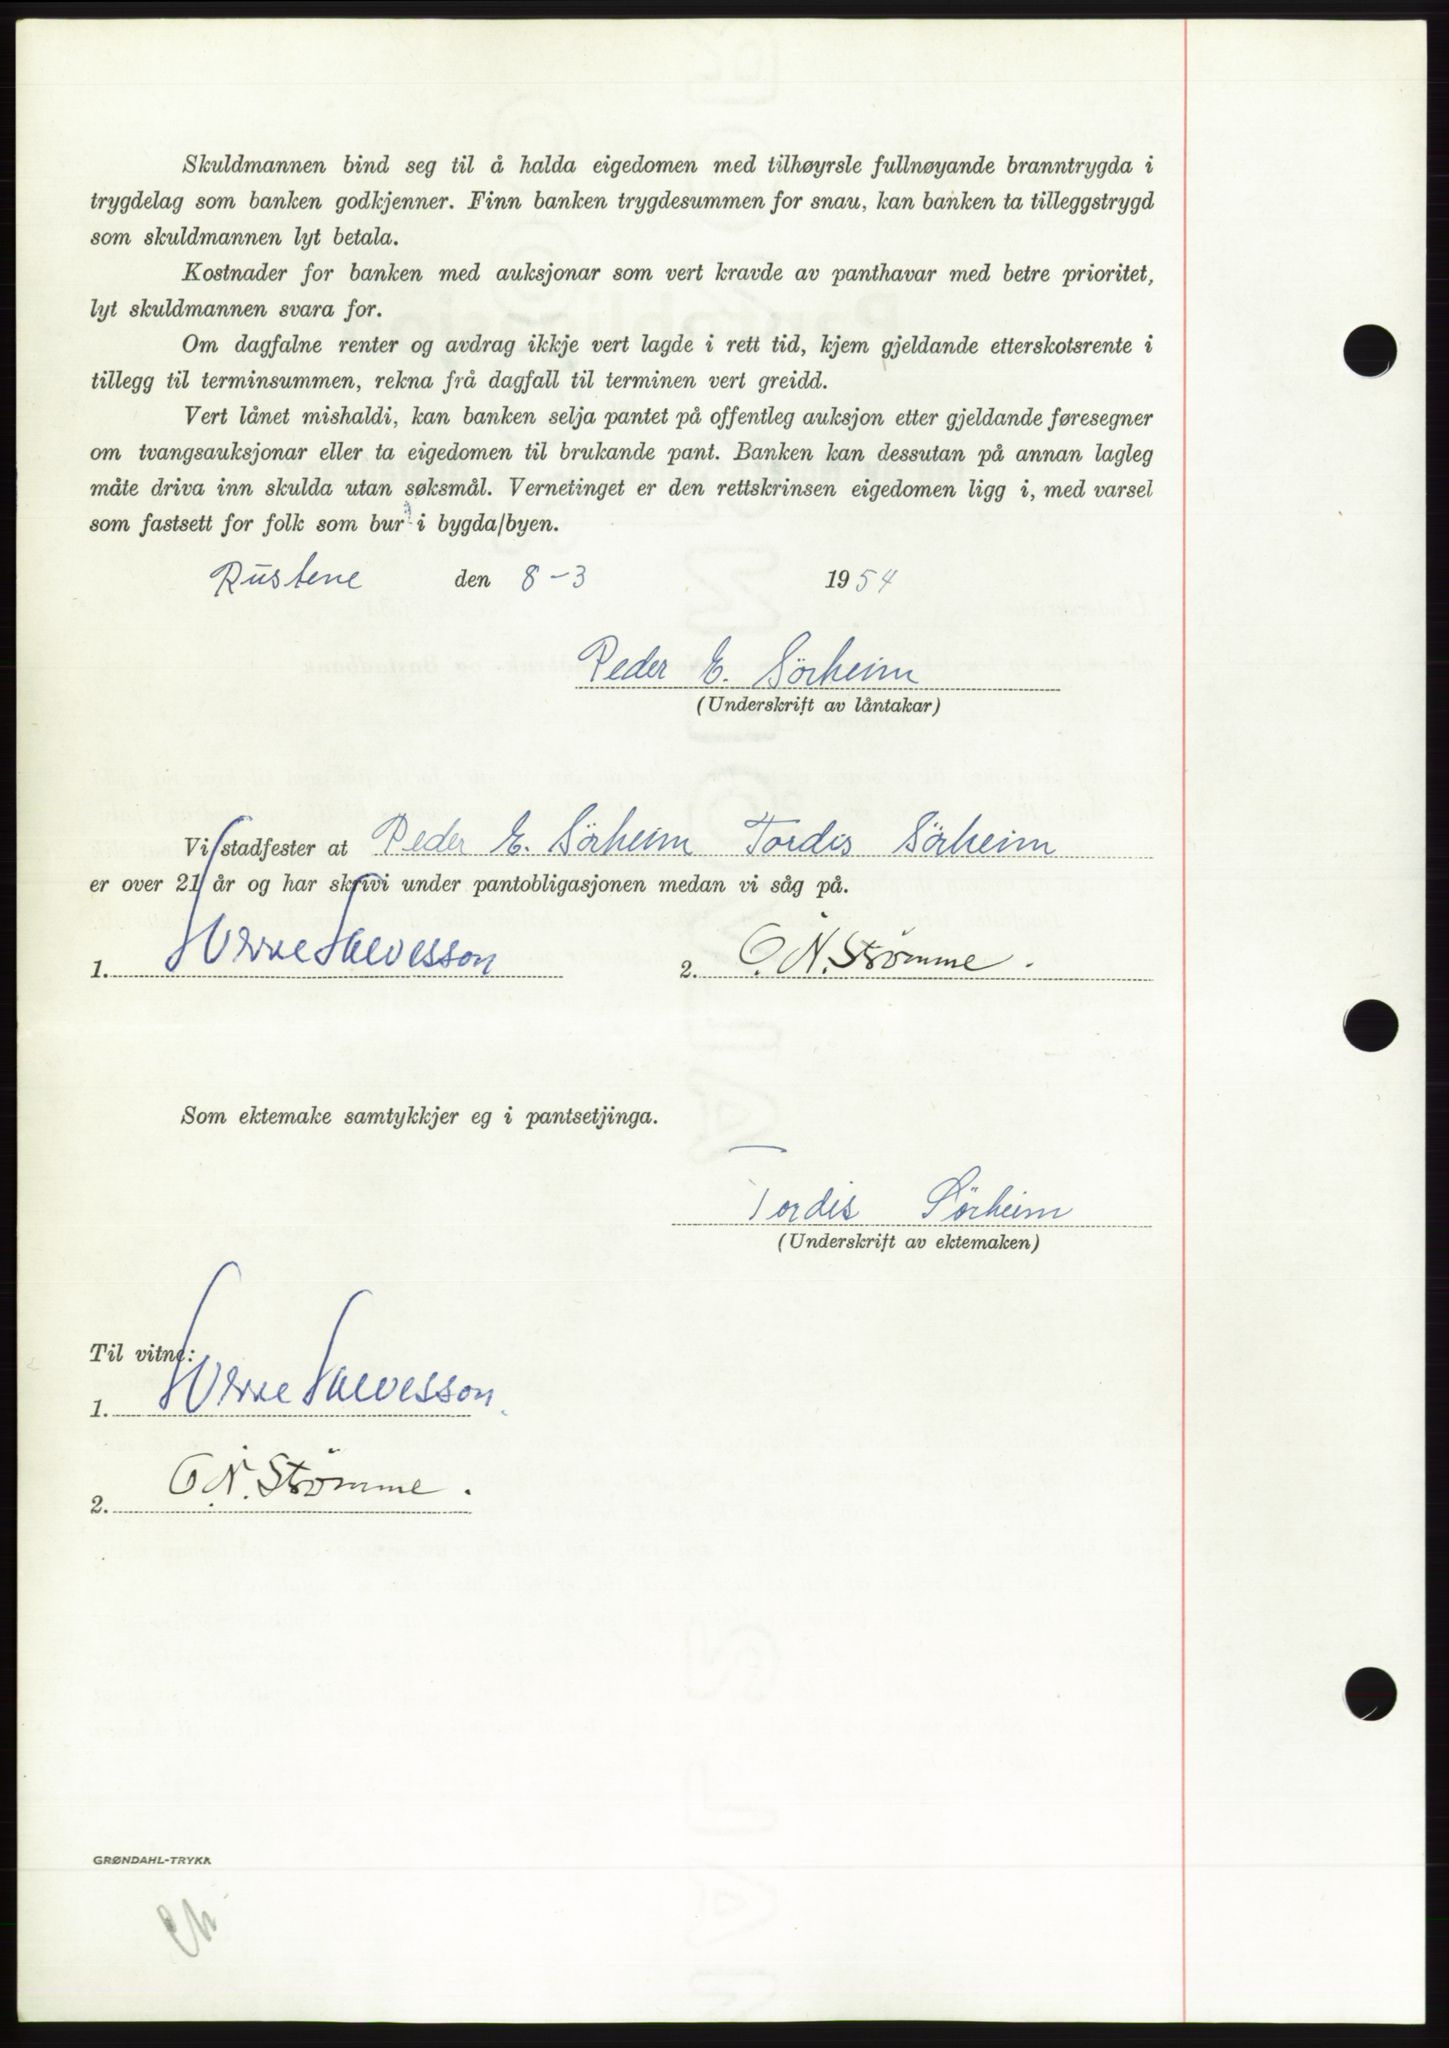 Skuldmannen bind seg til å halda eigedomen med tilhøyrsle fullnøyande branntrygda i
trygdelag som banken godkjenner. Finn banken trygdesummen for snau, kan banken ta tilleggstrygd
som skuldmannen lyt betala.
Kostnader for banken med auksjonar som vert kravde av panthavar med betre prioritet,
lyt skuldmannen svara for.
Om dagfalne renter og avdrag ikkje vert lagde i rett tid, kjem gjeldande etterskotsrente i
tillegg til terminsummen, rekna frå dagfall til terminen vert greidd.
Vert lånet mishaldi, kan banken selja pantet på offentleg auksjon etter gjeldande føresegner
om tvangsauksjonar eller ta eigedomen til brukande pant. Banken kan dessutan på annan lagleg
måte driva inn skulda utan søksmål. Vernetinget er den rettskrinsen eigedomen ligg i, med varsel
som fastsett for folk som bur i bygda/byen.
Rustene den 8-3 1954
Peder E. Sörheim
(Underskrift av låntakar)
Vi stadfester at Peder E. Sörheim Tordis Sörheim
er over 21 år og har skrivi under pantobligasjonen medan vi såg på.
1. Sverre Salvesson 2. O. N. Strømme.
Som ektemake samtykkjer eg i pantsetjinga.
Tordis Sörheim
(Underskrift av ektemaken)
Til vitne:
1. Sverre Salvesson.
2. O. N. Strømme.
GRØNDAHL-TRYKK